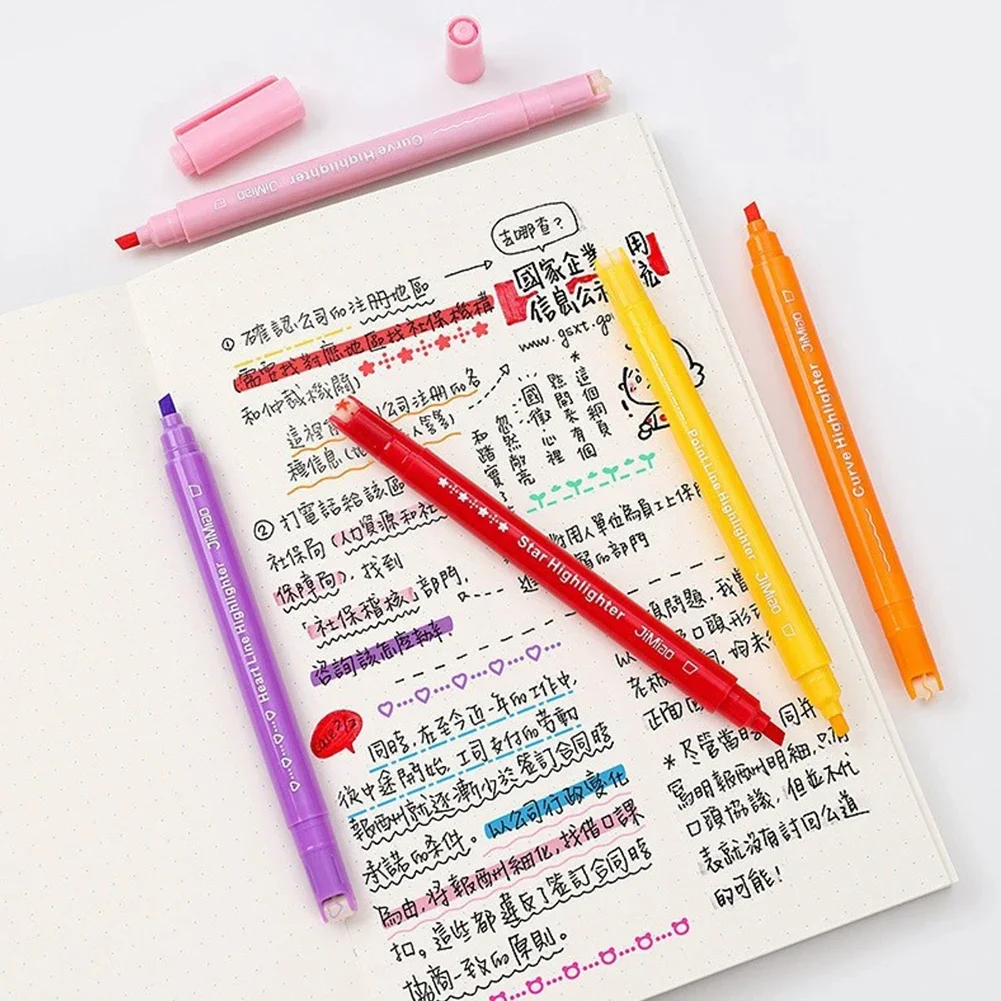 Curve Highlighter JiMiao
去哪查?
國家企業 用
信息公
www.gsxt.go
① 確認公司的注册地區
(需要找對應地區找社保機構
和仲裁機關)
這裡 公司注册的各
種信息(
*這個網頁
點開來有個
國徽 心裡
忽然敞亮
和踏實
② 打電話給該區
社保局(人力資源和社
保障局), 找到
「社保稽核」部門,
咨詢該怎麼辦.
用人單位為員工上保
的部門
case 2
同時, 在至今近一年的工作中,
從中途開始, 工司支付的勞動
報酬州就逐漸少於签訂合同時
承諾的条件。以公司行政變化
為由, 將報酬州細化, 找借口課
扣。這些都違反了签訂合同時
協商一致的原則。
問題, 我
口頭形
正面
* 尽管當時 同并
寫明報酬州明細,
口頭協議, 但並不代
表就没有討回公道
的可能!
JiMiao Heart Line Highlighter
Star Highlighter JiMiao
Point Line Highlighter JiMiao
JiMiao Curve Highlighter